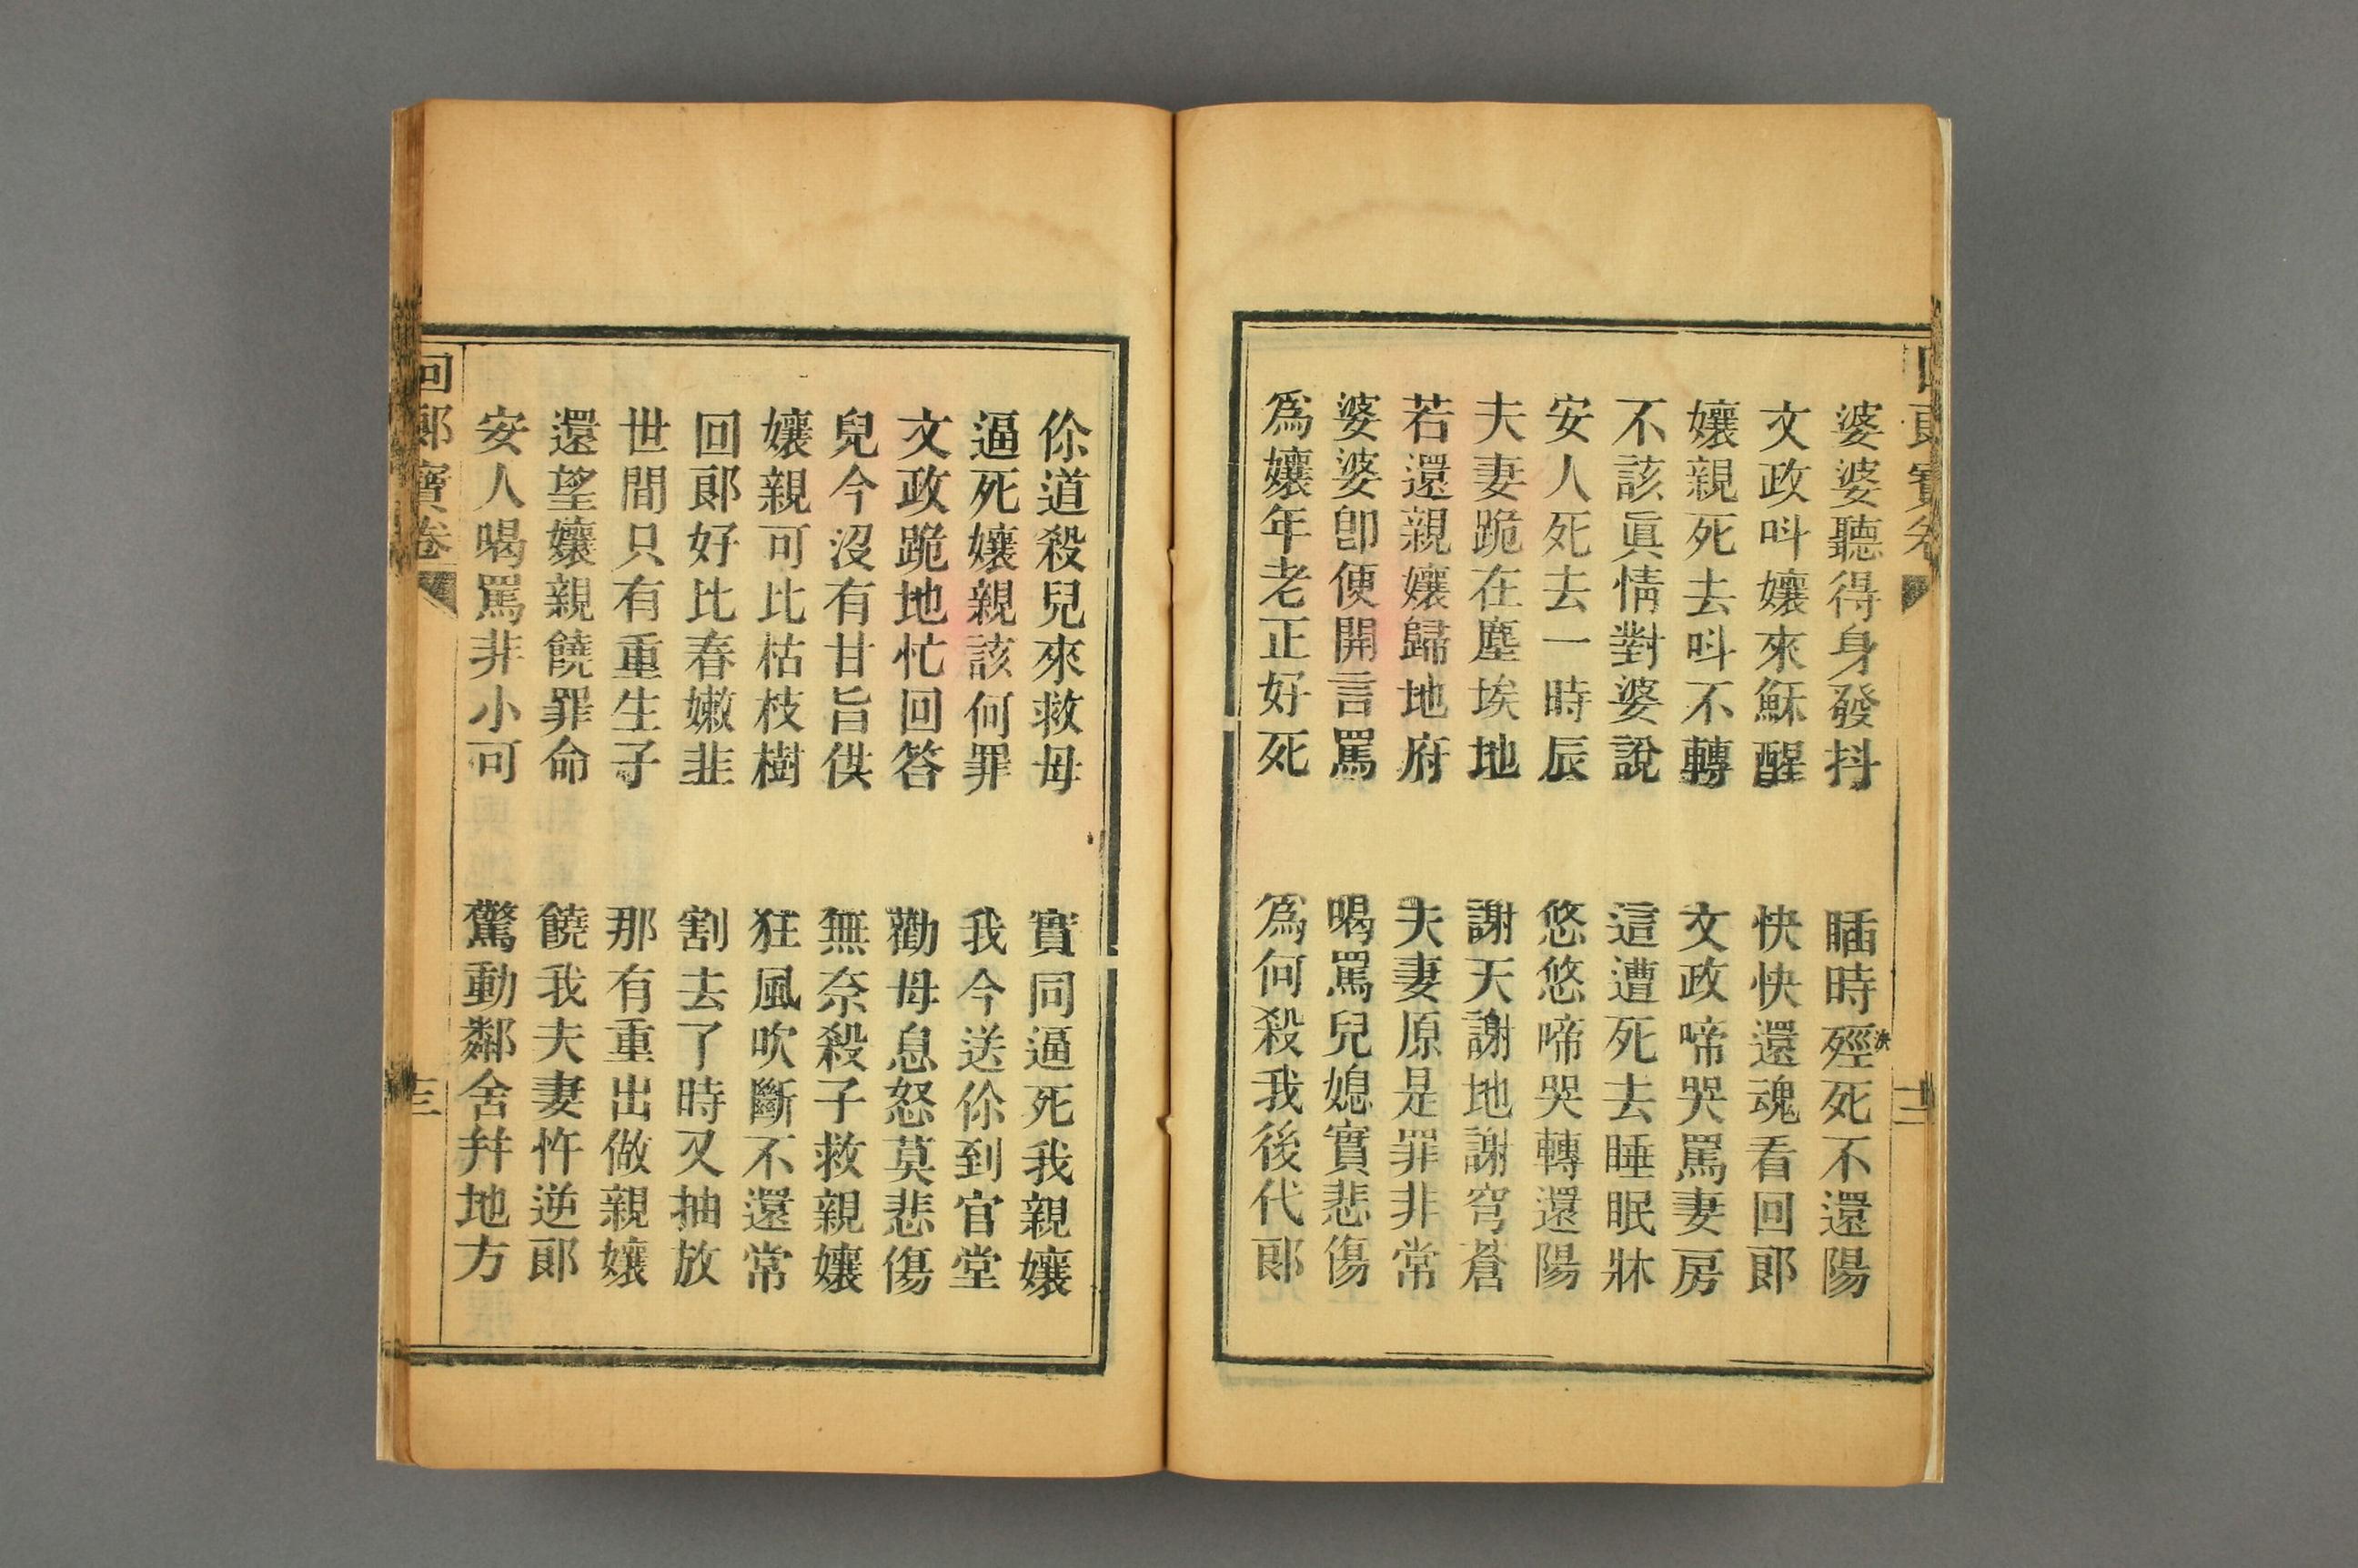 婆婆聽得身發抖　䐃時殌死不還陽
文政呌孃來穌醒　快快還魂看回郞
孃親死去呌不轉　文政啼哭罵妻房
不該眞情對婆說　這遭死去睡眠牀
安人死去一時辰　悠悠啼哭轉還陽
夫妻跪在塵埃地　謝天謝地謝穹蒼
若還親孃歸地府　夫妻原是罪非常
婆婆卽便開言罵　喝罵兒媳實悲傷
爲孃年老正好死　爲何殺我後代郞
伱道殺兒來救母　實同逼死我親孃
逼死孃親該何罪　我今送伱到官堂
文政跪地忙回答　勸母息怒莫悲傷
兒今沒有甘旨供　無奈殺子救親孃
孃親可比枯枝樹　狂風吹斷不還常
回郞好比春嫩韭　割去了時又抽放
世間只有重生子　那有重出做親孃
還望孃親饒罪命　饒我夫妻忤逆郞
安人喝罵非小可　驚動鄰舍幷地方
回郞寶卷